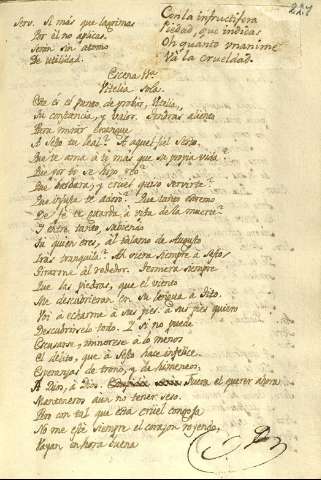 227
Serv. Si más que lagrimas
Por él no aplicas
Serán sin atomo
De utilidad.
Con la infructifera
Piedad, que indicas
Oh quanto unanime
Vá la crueldad.
Escena 11ª
Vitelia Sola.
Este és el punto de probar, Vitelia,
Su constancia, y valor. Tendras aliento
Para mirar exangue
A Sesto tu leal? A aquel fiel Sesto
Que te ama à ti más que su propia vida?
Que por ti se hizo reo?
Que
y cruel quiso servirte?
Que injusta te adoró? Que tanto estremo
De fé te guarda à vista de la muerte?
Y entre tanto, sabiendo
Tu quien eres, al talamo de Augusto
Iras tranquila? Ah viera siempre à Sesto
Girarme al rededor. Temiera siempre
Que las piedras, que el viento
Me descubrieran en su lengua à Tito.
Voi à echarme à sus pies: à sus pies quiero
Descubrirselo todo. Y si no puede
Escusarse, minorese à lo menos
El delito, que à Sesto hace infelice.
Esperanzas de trono, y de himeneo,
A Dios, à Dios.
Fuera el querer ahora
Manteneros aun no tener seso.
Pero con tal que esta cruel congoja
No me esté siempre el corazon royendo,
Vayan en hora buena